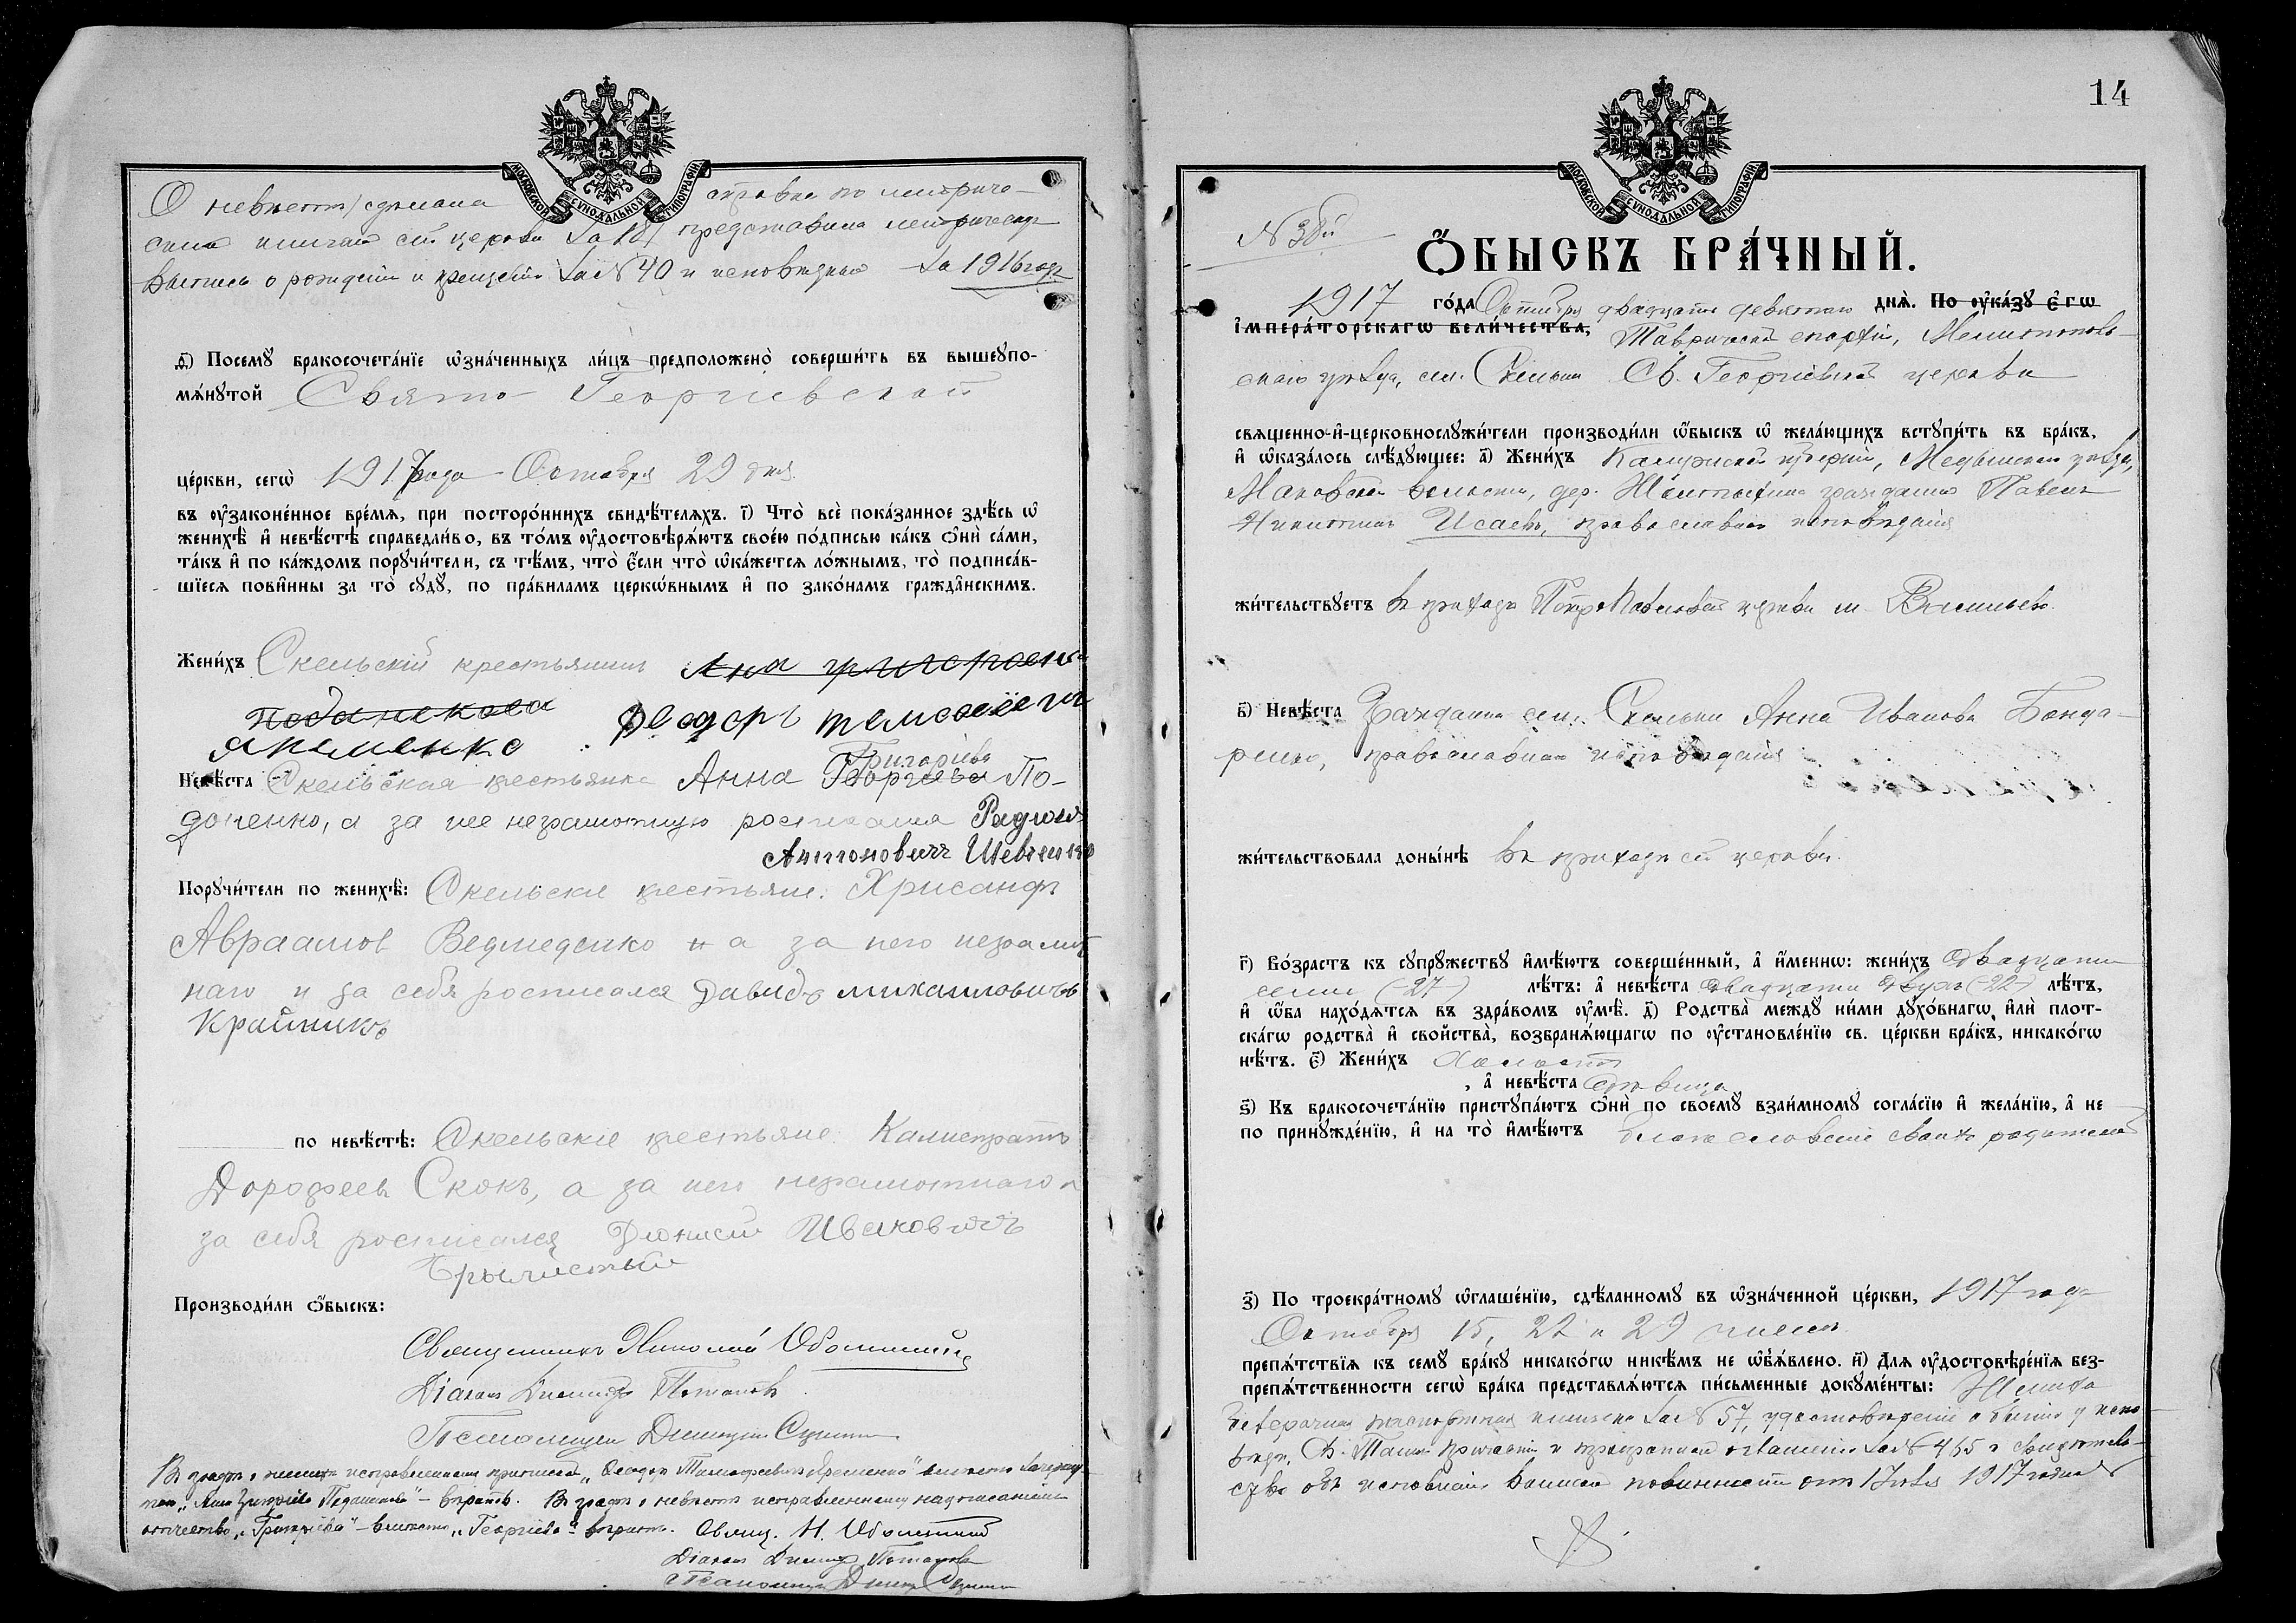 МОСКОВСКОЙ СѴНОДАЛЬНОЙ ТИПОГРАФІИ
О невѣстѣ сдѣлана справка по метриче-
ской книгѣ сей церкви за 18 представлена метрическая
выпись о рожденіи и крещеніи за № 40 и исповѣдная за 1916 годъ
д҃) Посемꙋ̀ бракосочета́нїе ѡ҆зна́ченныхъ ли́цъ предположено̀ соверши́ть въ вышеꙋпо-
мѧ́нꙋтой Свято-Георгіевской
це́ркви, сегѡ̀ 1917 года Октября 29 дня
въ ᲂу҆зако́не́нное вре́мѧ, при посторо́ннихъ свидѣ́телѧхъ. і҃) Что̀ всѐ пока́занное здѣ́сь ѡ҆
женихѣ̀ и҆ невѣ́стѣ справедли́во, въ то́мъ ᲂу҆достовѣрѧ́ютъ свое́ю по́дписью ка́къ ѻ҆нѝ са́ми,
та́къ и҆ по ка́ждомъ порꙋчи́тели, съ тѣ́мъ, что̀ є҆́сли что̀ ѡ҆ка́жетсѧ ло́жнымъ, то̀ подписа́в-
шїесѧ пови́нны за то̀ сꙋдꙋ̀, по пра́виламъ церкѡ́внымъ и҆ по зако́намъ гражда́нскимъ.
Жени́хъ Скельскій крестьянинъ Анна Григорьева
Педаченкова Феодоръ Тимофеевичъ
Яременко
Григоріева
Невѣ́ста Скельская крестьянка Анна Георгіева По-
доченко, а за нее неграмотную росписался Родионъ
Антоновичъ Шевченко
Порꙋчи́тели по женихѣ̀: Скельскіе крестьяне: Хрисанфъ
Авраамовъ Ведмеденко и а за него неграмот
наго и за себя росписался Давидъ Михаиловичъ
Крайникъ
по невѣ́стѣ: Скельскіе крестьяне: Калистратъ
Дорофеевъ Скокъ, а за него неграмотнаго и
за себя росписался Дионисій Ивановичъ
Производи́ли ѻ҆́быскъ:
Священникъ Николай Оболенскій
Діаконъ Димитрій Потаповъ
Псаломщикъ Димитрій
Въ графѣ о женихѣ исправленному припискою „Феодоръ Тимофеевичъ Яременко" вмѣсто зачеркну-
таго „Анна Григоріева Педаченкова" – вѣрить. Въ графѣ о невѣстѣ исправленному надписаніемъ
отчество „Григоріева" – вмѣсто „Георгіева" вѣрить. Свящ. Н. Оболенскій
Діаконъ Димитрій Потаповъ
Псаломщикъ Димитрій
14
МОСКОВСКОЙ СѴНОДАЛЬНОЙ ТИПОГРАФІИ
№ 38й
Ѻ҆БЫСКЪ БРА́ЧНЫЙ.
1917 го́да Октября двадцать девятаго днѧ̀. По ᲂу҆ка́зꙋ є҆гѡ̀
і҆мпера́торскагѡ вели́чества, Таврической епархіи, Мелитополь-
скаго уѣзда, сел. Скельки Св. Георгіевской церкви
свѧще́нно-и҆-церковнослꙋжи́тели производи́ли ѻ҆́быскъ ѡ҆ жела́ющихъ встꙋпи́ть въ бра́къ,
и҆ ѡ҆каза́лось слѣ́дꙋющее: а҃) Жени́хъ Калужской губерніи, Медынскаго уѣзда,
Маковской волости, дер. Желтыкина гражданинъ Павелъ
Никитинъ Исаевъ, православнаго исповѣданія
жи́тельствꙋетъ въ приходѣ Петро-Павловской церкви м. Васильево.
в҃) Невѣ́ста Гражданка сел. Скельки Анна Иванова Бонда-
ренко, православнаго исповѣданія
жи́тельствовала доны́нѣ въ приходѣ сей церкви.
г҃) Во́зрастъ къ сꙋпрꙋ́жествꙋ и҆мѣ́ютъ соверше́нный, а҆ и҆́меннѡ: жени́хъ двадцати
семи (27) лѣ́тъ: а҆ невѣ́ста двадцати двухъ (22) лѣ́тъ,
и҆ ѻ҆́ба нахо́дѧтсѧ въ здра́вомъ ᲂу҆мѣ̀. д҃) Родства̀ междꙋ ни́ми дꙋхо́внагѡ и҆лѝ плот-
ска́гѡ родства̀ и҆ сво́йства̀, возбранѧ́ющагѡ по ᲂу҆становле́нїю св. це́ркви бра́къ, никако́гѡ
нѣ́тъ. є҃) Жени́хъ холостъ
, а҆ невѣ́ста дѣвица
ѕ҃) Къ бракосочета́нїю пристꙋпа́ютъ ѻ҆нѝ по своемꙋ̀ взаи́мномꙋ согла́сїю и҆ жела́нїю, а҆ не
по принꙋжде́нїю, и҆ на то̀ и҆мѣ́ютъ благословеніе своихъ родителей
з҃) По троекра́тномꙋ ѡ҆глаше́нїю, сдѣ́ланномꙋ въ ѡ҆зна́ченной це́ркви, 1917 года
Октября 15, 22 и 29 чиселъ
препѧ́тствїѧ къ семꙋ̀ бра́кꙋ никако́гѡ никѣ́мъ не ѡ҆б̾ѧ́влено. и҃) Длѧ̀ ᲂу҆достовѣре́нїѧ без-
препѧ́тственности сегѡ̀ бра́ка представлѧ́ютсѧ пи́сьменные докꙋме́нты: Жениха
безсрочная паспортная книжка за № 57, удостовѣреніе о бытіи у испо-
вѣди, Св. Таинъ Причастія и троекратномъ оглашеніи за № 465 и свидѣтель-
ство объ исполненіи воинской повинности отъ 1917 года